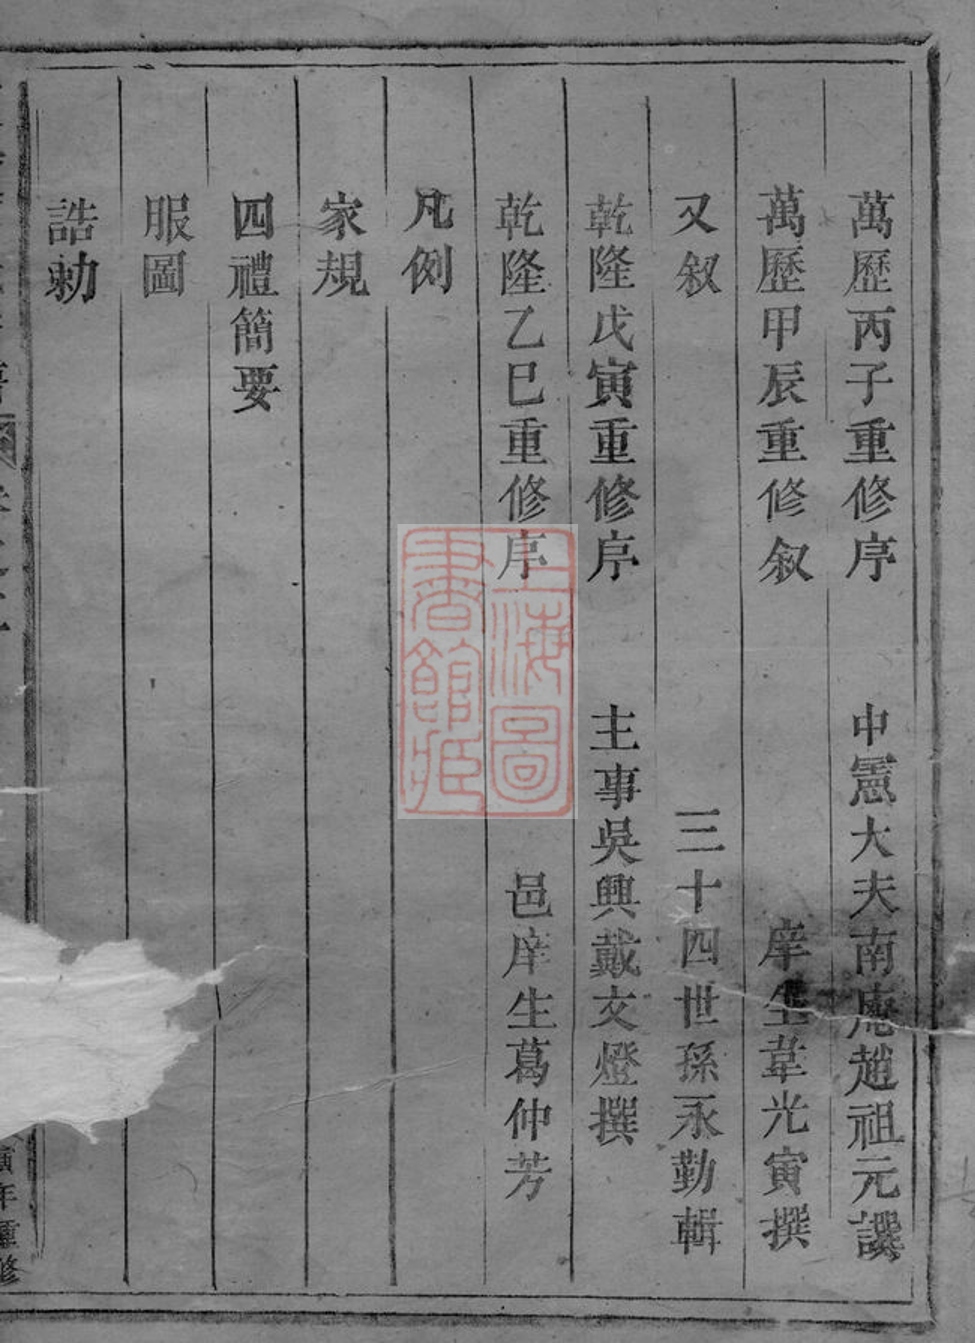 萬歷丙子重修序 中憲大夫南庵趙祖元譔
萬歷甲辰重修叙 庠生韋光寅撰
又叙 三十四世孫永勤輯
乾隆戊寅重修序 主事吳興戴文燈撰
乾隆乙巳重修序 邑庠生葛仲芳
凡例
家規
四禮簡要
服圖
誥勅
年重修
上海圖書館藏